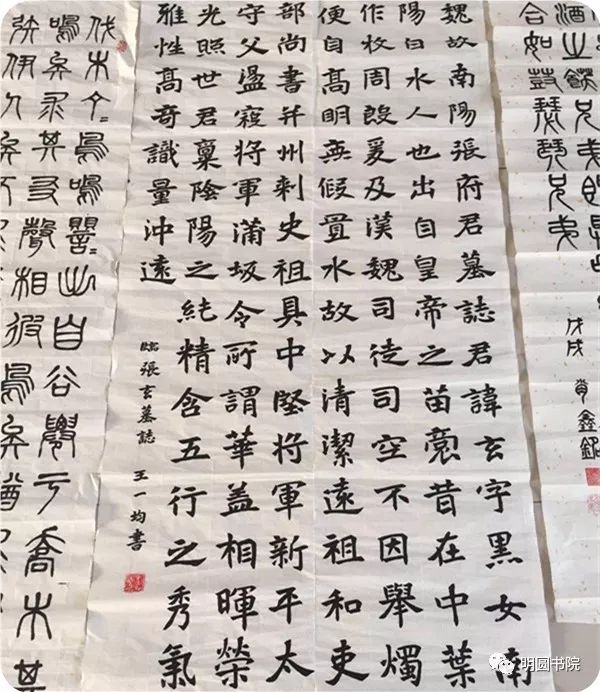 酒之飫兄弟既
合如鼓瑟琴兄弟
戊戌 肖鑫銘
魏故南陽張府君墓誌君諱玄字黑女南
陽白水人也出自皇帝之苗裔昔在中葉
作牧周殷爰及漢魏司徒司空不因舉燭
便自高明無假置水故以清潔遠祖和吏
部尚書并州刺史祖具中堅將軍新平太
守父盪寇將軍蒲坂令所謂華蓋相暉榮
光照世君稟陰陽之純精含五行之秀氣
雅性高奇識量沖遠
臨張玄墓誌 王一均書
伐木丁=鳥鳴嚶=出自谷遷于喬木其
鳴矣求其友聲相彼鳥矣猶
矧伊人矣不
明圆书院